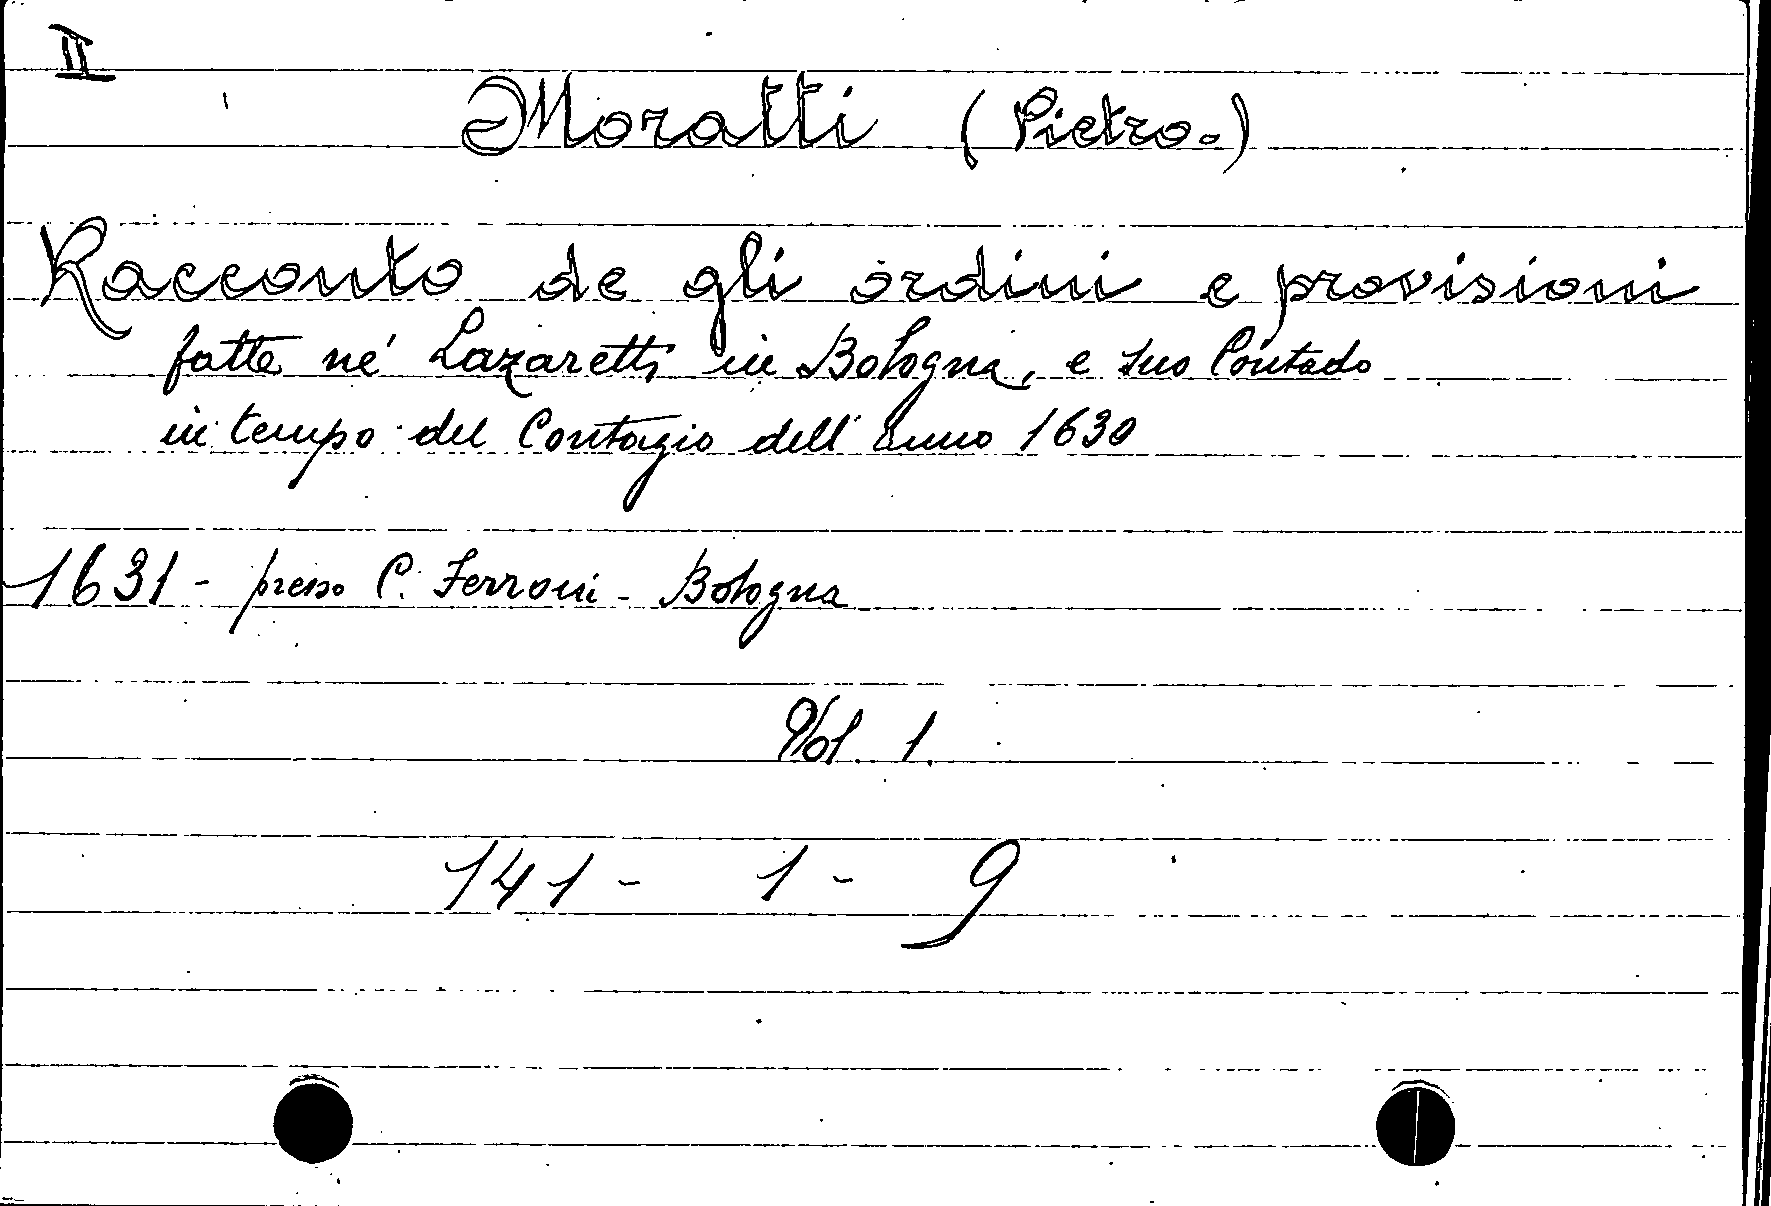 II
Moratti (Pietro.)
Racconto de gli ordini e provisioni
fatte né Lazaretti in Bologna, e suo Contado
in tempo del Contagio dell'Anno 1630
1631 - presso C. Ferroni - Bologna
Vol. 1.
141 - 1 - 9